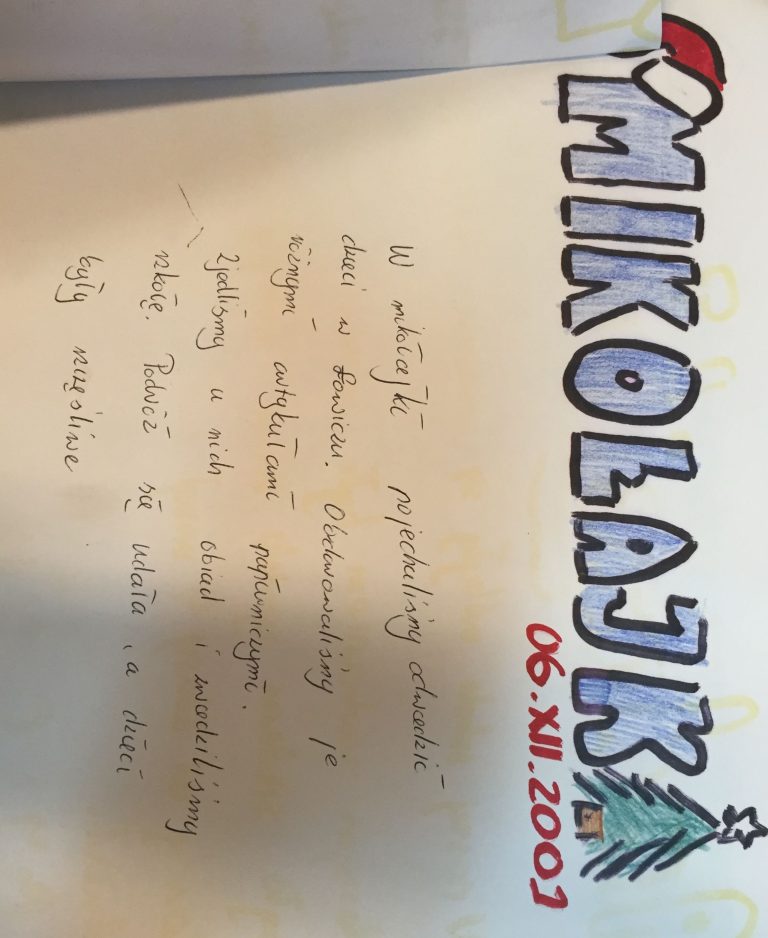 MIKOŁAJK
06.XII.2001
W mikołajki pojechaliśmy odwiedzić
dzieci w Łowiczu. Obdarowaliśmy je
różnymi artykułami papierniczymi.
Zjedliśmy u nich obiad i zwiedziliśmy
szkołę. Podróż się udała, a dzieci
były szczęśliwe.